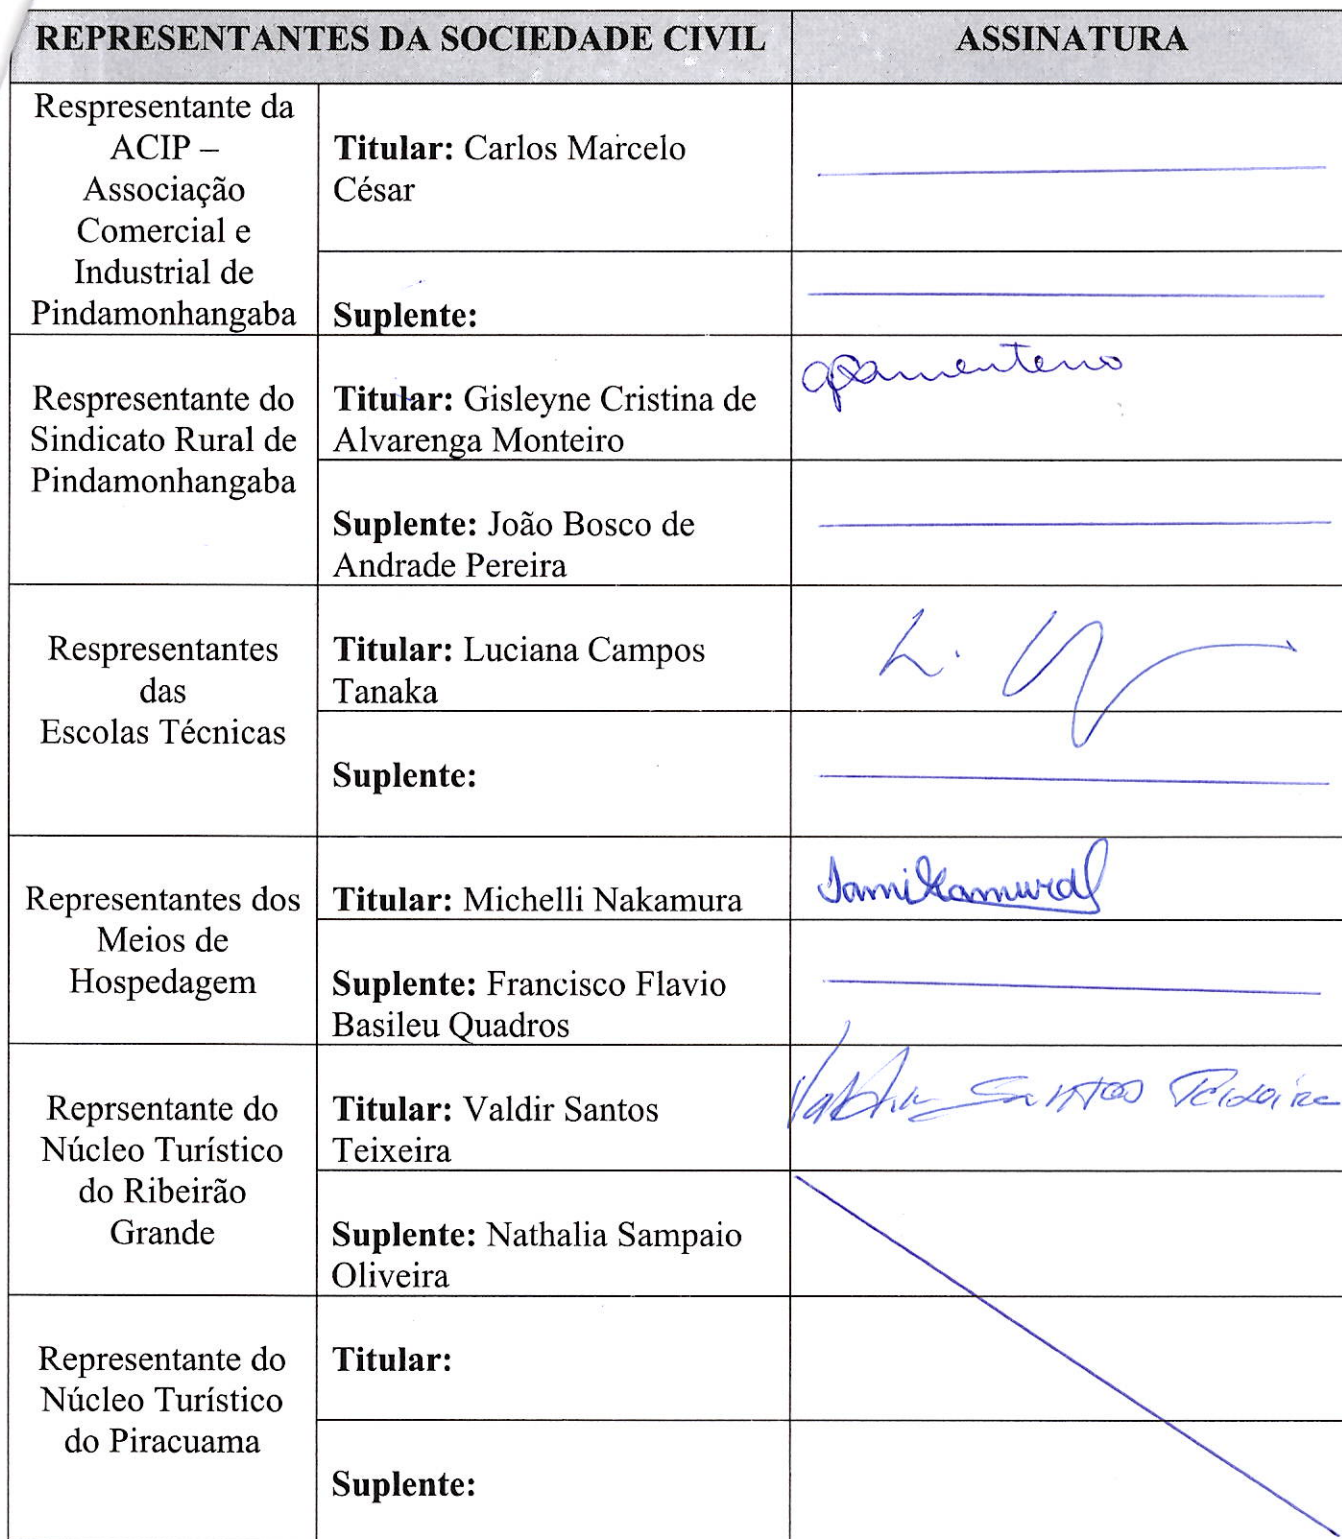 REPRESENTANTES DA SOCIEDADE CIVIL
ASSINATURA
Respresentante da
ACIP –
Associação
Comercial e
Industrial de
Pindamonhangaba
Titular: Carlos Marcelo
César
Suplente:
Respresentante do
Sindicato Rural de
Pindamonhangaba
Titular: Gisleyne Cristina de
Alvarenga Monteiro
Suplente: João Bosco de
Andrade Pereira
Respresentantes
das
Escolas Técnicas
Titular: Luciana Campos
Tanaka
L.
Suplente:
Representantes dos
Meios de
Hospedagem
Titular: Michelli Nakamura
Suplente: Francisco Flavio
Basileu Quadros
Reprsentante do
Núcleo Turístico
do Ribeirão
Grande
Titular: Valdir Santos
Teixeira
Valdir Santos Teixeira
Suplente: Nathalia Sampaio
Oliveira
Representante do
Núcleo Turístico
do Piracuama
Titular:
Suplente: